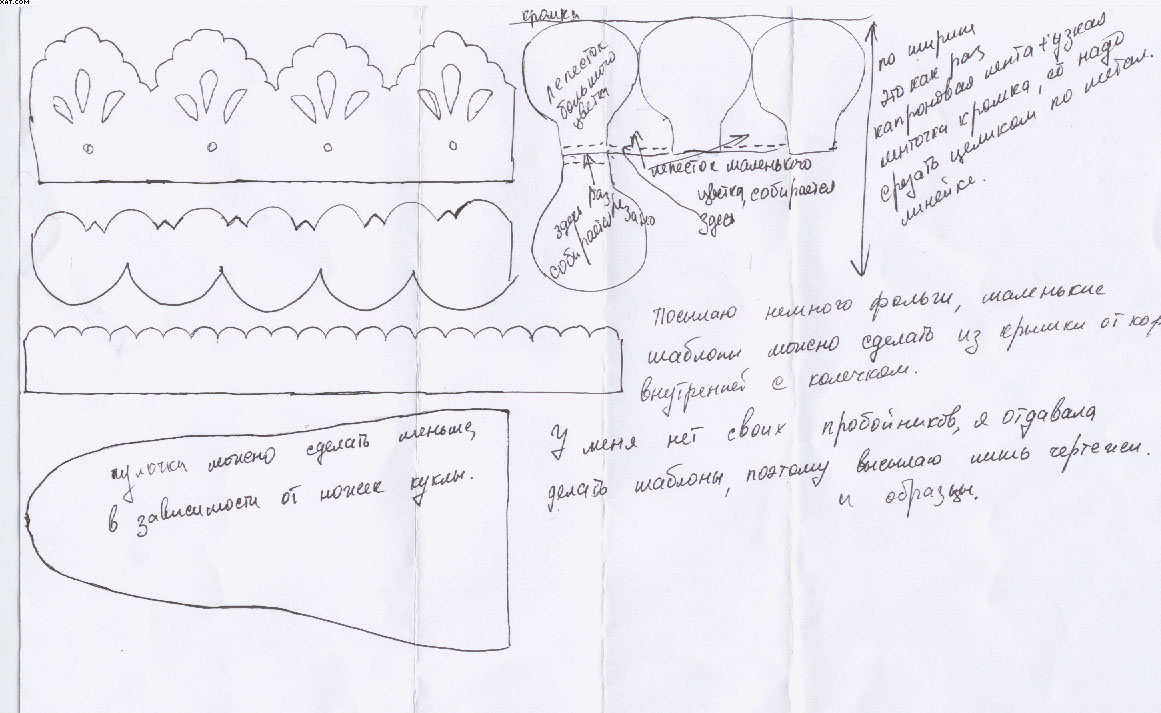 XAT.COM
кромка
лепесток
большого
цветка
по ширине
это как раз
капроновая лента + узкая
ленточка кромка, её надо
срезать целиком по метал.
линейке.
лепесток маленького
цветка, собирается
здесь
здесь
собирается
Посылаю немного фольги, маленькие
шаблоны можно сделать из крышки от кор
внутренней с колечком.
У меня нет своих пробойников, я отдавала
делать шаблоны, поэтому высылаю лишь чертежи.
и образцы.
чулочки можно сделать меньше,
в зависимости от ножек куклы.